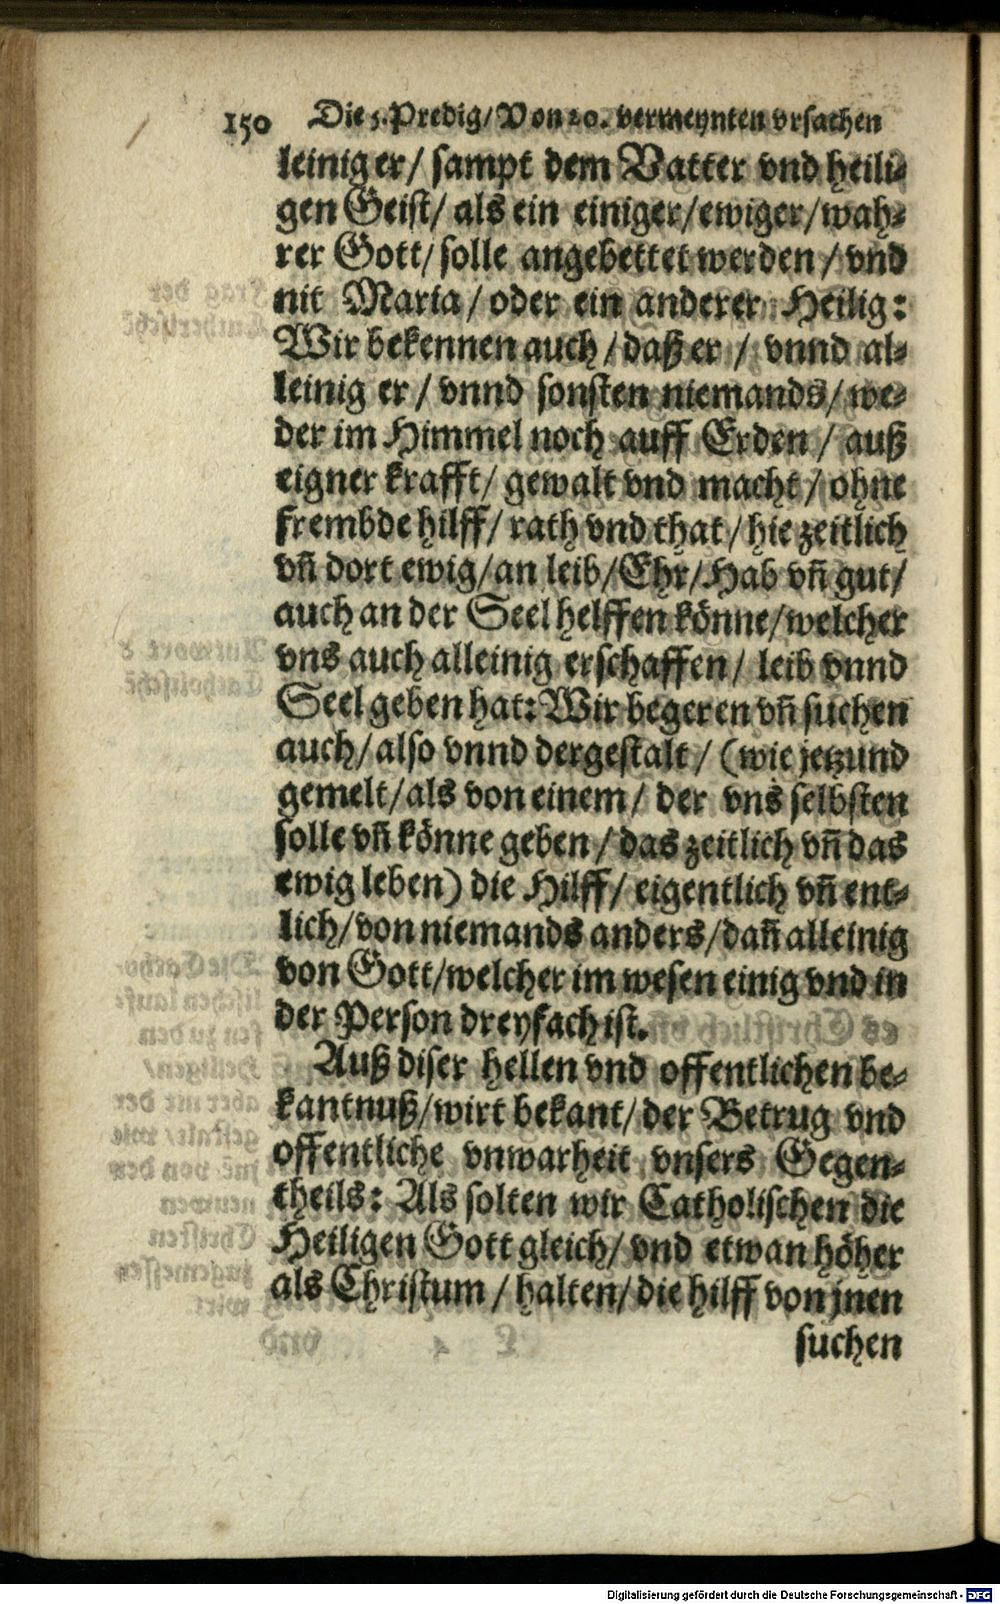 150 Die 5. Predig/ Von 20. vermeynten vrsachen
leinig er/ sampt dem Vatter vnd heili-
gen Geist/ als ein einiger/ ewiger/ wah-
rer Gott/ solle angebettet werden/ vnd
nit Maria/ oder ein anderer Heilig:
Wir bekennen auch/ daß er/ vnnd al-
leinig er/ vnnd sonsten niemands/ we-
der im Himmel noch auff Erden/ auß
eigner krafft/ gewalt vnd macht/ ohne
frembde hilff/ rath vnd that/ hie zeitlich
vñ dort ewig/ an leib/ Ehr/ Hab vñ gut/
auch an der Seel helffen könne/ welcher
vns auch alleinig erschaffen/ leib vnnd
Seel geben hat: Wir begeren vñ suchen
auch/ also vnnd dergestalt/ (wie jetzund
gemelt/ als von einem/ der vns selbsten
solle vñ könne geben/ das zeitlich vñ das
ewig leben) die Hilff/ eigentlich vñ ent-
lich/ von niemands anders/ dañ alleinig
von Gott/ welcher im wesen einig vnd in
der Person dreyfach ist.
Auß diser hellen vnd offentlichen be-
kantnuß/ wirt bekant/ der Betrug vnd
offentliche vnwarheit vnsers Gegen-
theils: Als solten wir Catholischen die
Heiligen Gott gleich/ vnd etwan höher
als Christum/ halten/ die hilff von jnen
suchen
Digitalisierung gefördert durch die Deutsche Forschungsgemeinschaft - DFG